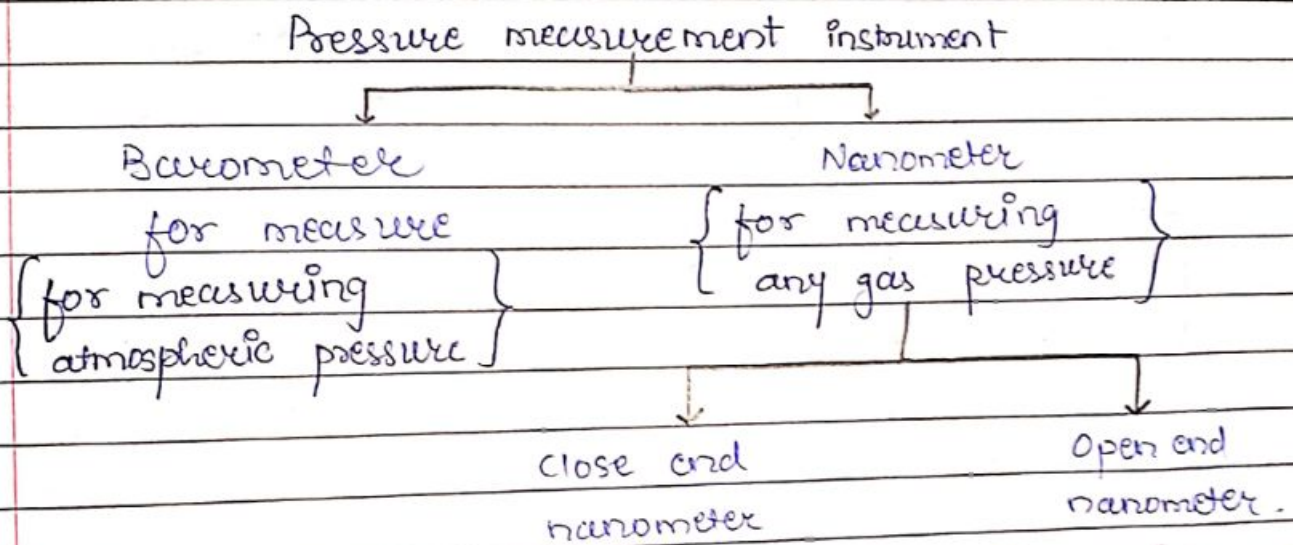 Pressure measurement instrument
Barometer
Nanometer
for measure
{for measuring
atmospheric pressure}
{for measuring
any gas pressure}
Close end
nanometer
Open end
nanometer.